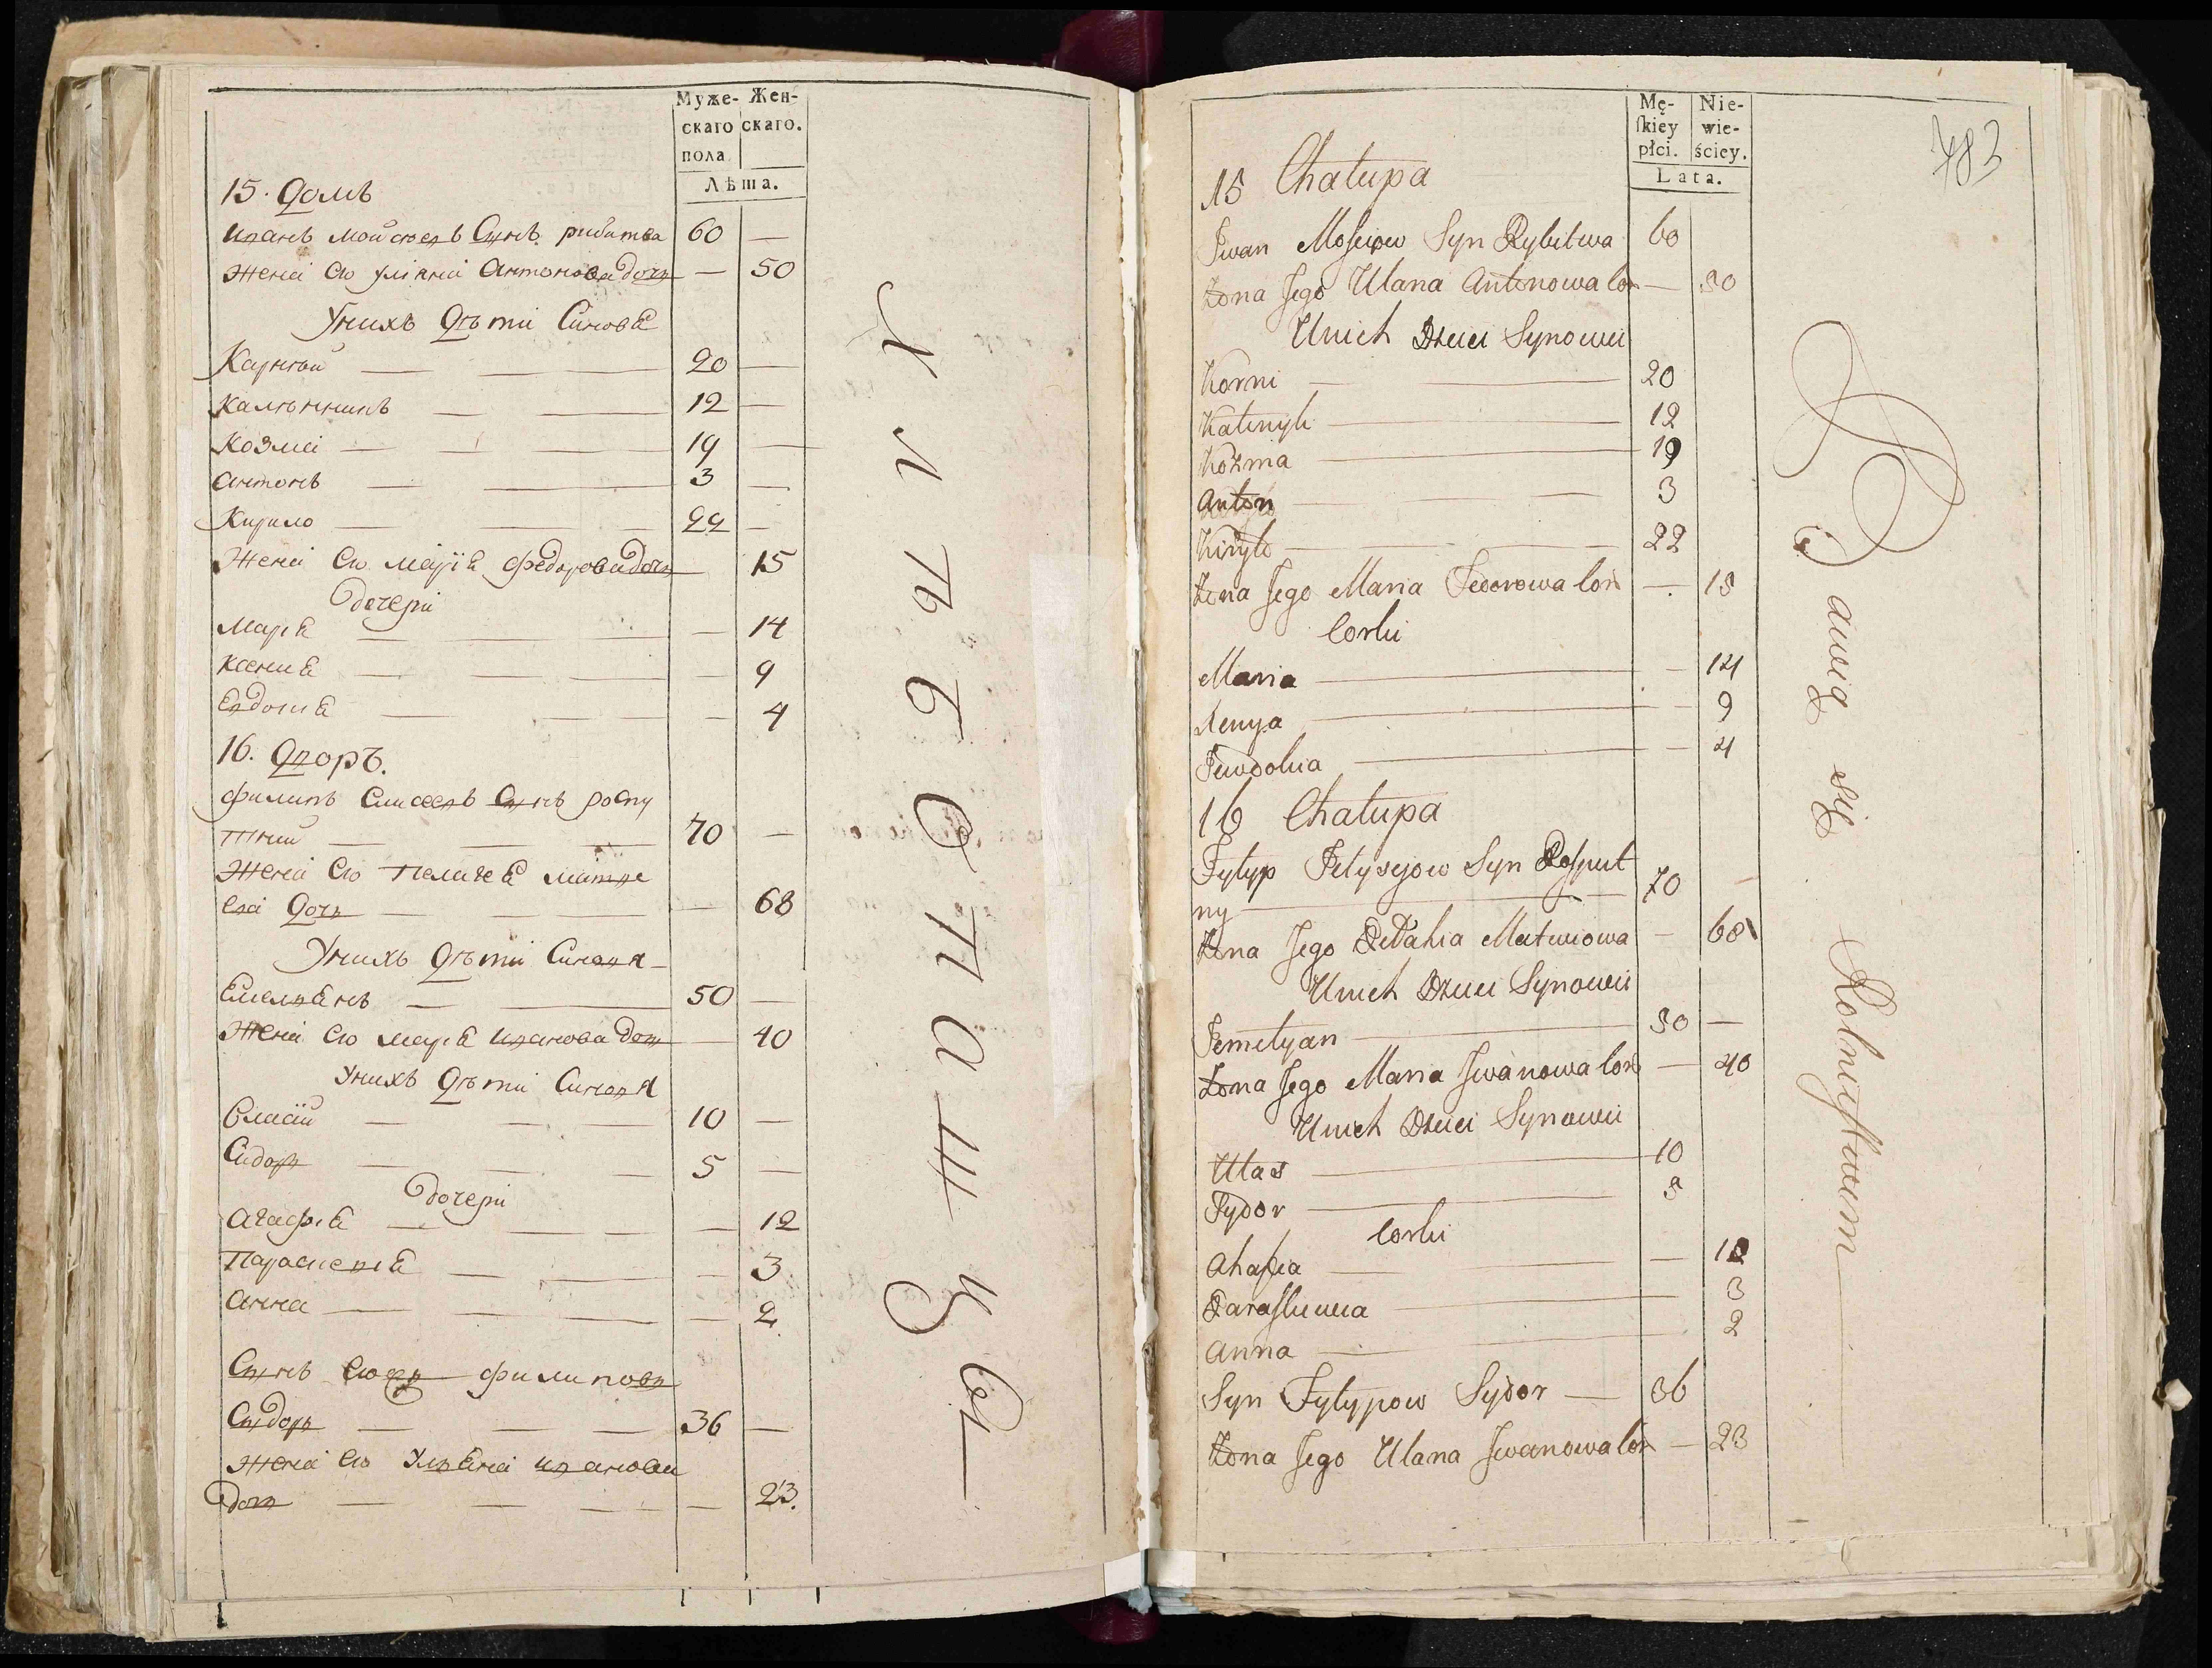 Муже- Жен-
скаго скаго.
пола
Лѣта.
15. Домъ
Иванъ Мойсѣевъ Сынъ рибитва 60 —
Жена Ею Уліяна Антонова дочь — 50
Унихъ Дѣти Синове
Карнѣй — — — 20 —
Калѣнникъ — — 12 —
Козма — — — 19 —
Антонъ — — 3 —
Кирило — — — 22 —
Жена Ею Марія Федорова дочь 15
дочери
Марія — — — — 14
Ксенія — — — — 9
Евдокія — — — — 4
16. Дворъ.
Филипъ Елисеевъ Сынъ роспу
тний — — — 70 —
Жена Ею Пелагея Матве
ева Дочь — — — 68
Унихъ Дѣти Синовя
Емельянъ — — 50 —
Жена Ею Марія Иванова дочь — 40
Унихъ Дѣти Синовя
Власій — — — 10 —
Сидоръ — — — 5 —
дочери
Агафія — — — — 12
Парасковія — — — 3
Анна — — — — 2
Сынъ Филиповъ
Сыдоръ — — — 36 —
Жена Ею Ульяна Иванова
дочь — — — — 23.
Хлѣбопашцѣ
Mę- Nie-
skiey wie-
płci. ściey.
Lata.
783
15 Chałupa
Jwan Mosieiow Syn Rybitwa 60
Żona Jego Ulana Antonowa Cor — 50
Unich Dzieci Synowie
Korni — — 20
Kalenyk — 12
Kozma — 19
Anton — — 3
Kiryło — — 22
Żona Jego Maria Fedorowa Cor — 15
Corki
Maria — — 14
Xenya — — 9
Jewdokia — — 4
16 Chałupa
Fylyp Jelysejow Syn Rosput
ny — 70 —
Żona Jego Pelahia Matwiowa — 68
Unich Dzieci Synowie
Jemelyan — 50 —
Żona Jego Maria Jwanowa Cor — 40
Unich Dzieci Synowie
Ułas — 10
Sydor — 5
Corki
Ahafia — — — 12
Paraskiewia — 3
Anna — — 2
Syn Fylypow Sydor — 36
Żona Jego Ulana Jwanowa Cor — 23
Bawią się Rolnistwem